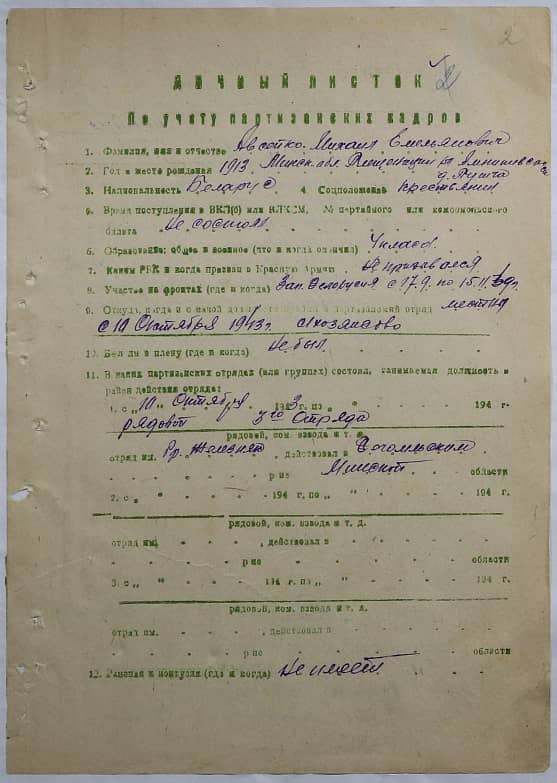 2
ЛИЧНЫЙ ЛИСТОК
По учету партизанских кадров
1. Фамилия, имя и отчество Авсейко Михаил Емельянович
2. Год и место рождения 1913 Минск. обл.
3. Национальность Беларус 4 Соцположение крестьянин
5. Время поступления в ВКП(б) или ВЛКСМ, № партийного или комсомольского
билета Не состоял
6. Образование: общее и военное (что и когда окончил) 4 класса
7. Каким РВК и когда призван в Красную Армию Не призывался
8. Участие на фронтах (где и когда) Зап. Белоруссия с 17.9. по 15.11.
9. Откуда, когда и с какой партизанский отряд местный
с 10 Октября 1943 г. с/хозяйство
10. Был ли в плену (где и когда) Не был
11. В каких партизанских отрядах (или группах) состоял, занимаемая должность и
район действия отряда:
1. с „10" Октября 1943 г. по „ " 194 г.
рядовой 3го отряда
рядовой, ком. взвода и т. д.
отряд им. бр. Железняк, действовал в Бегомльским
р-не Минской области
2. с „ " 194 г. по „ " 194 г.
рядовой, ком. взвода и т. д.
отряд им. , действовал в
р-не области
3. с „ " 194 г. по „ " 194 г.
рядовой, ком. взвода и т. д.
отряд им. , действовал в
р-не области
12. Ранения и контузия (где и когда) Не имеет